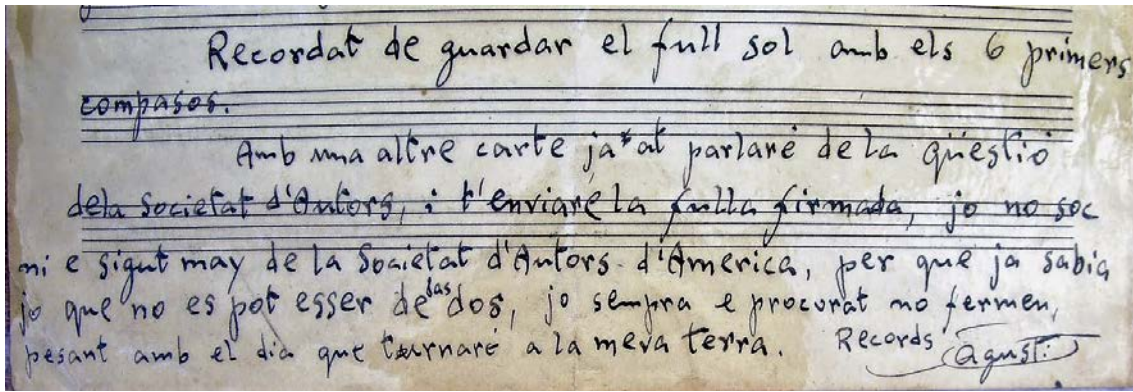 Recordat de guardar el full sol amb els 6 primers
compasos.
Amb una altre carte ja at parlaré de la qüestio
dela Societat d'Autors, i t'enviaré la fulla firmada, jo no soc
ni e sigut may de la Societat d'Autors d'America, per que ja sabia
jo que no es pot esser de las dos, jo sempra e procurat no fermen,
pesant amb el dia que turnaré a la meva terra. Records
Agustí